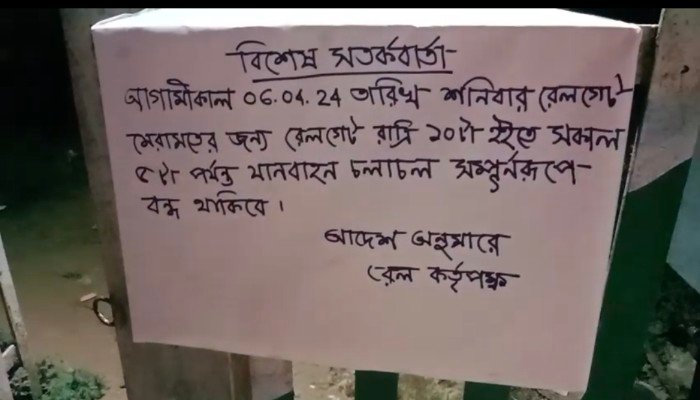 বিশেষ সতর্কবার্তা-
আগামীকাল ০6.04.24 তারিখ শনিবার রেলগেট
মেরামতের জন্য রেলগেট রাত্রি ১০টা হইতে সকাল
৫টা পর্যন্ত যানবাহন চলাচল সম্পূর্নরূপে-
বন্ধ থাকিবে।
আদেশ অনুসারে
রেল কর্তৃপক্ষ